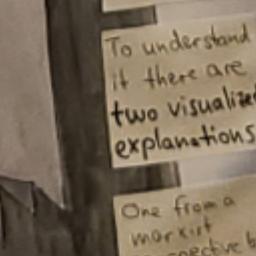 To understand
it there are
two visualized
explanations
One from a
marxist
perspective b